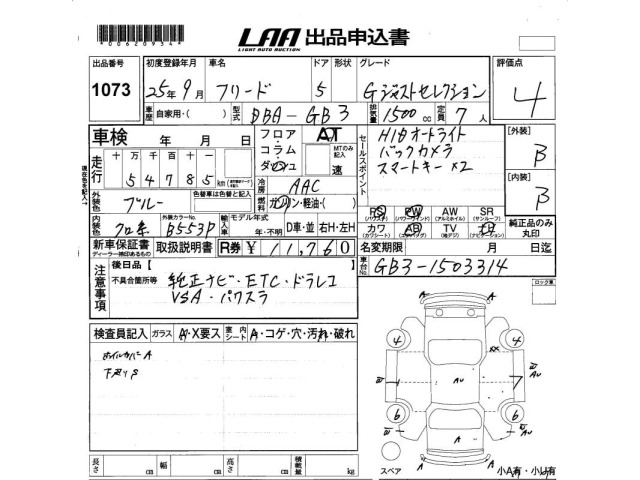 *00620934*
LAA 出品申込書
LIGHT AUTO AUCTION
出品番号 初度登録年月 車名 ドア 形状 グレード 評価点
1073 25年9月 フリード 5 Gジャストセレクション 4
車歴 自家用・( ) 型式 DBA-GB3 排気量 1500cc 定員 7人
車検 年 月 日 フロア・コラム・ダッシュ AT MTのみ記入 速
セールスポイント HIDオートライト
バックカメラ
スマートキー×2
[外装] B
[内装] B
走行 十 万 千 百 十 一
5 4 7 8 5 km
冷房 AAC
外装色 ブルー 色替車は色替と記入 燃料 ガソリン・軽油・( )
内装色 クロ系 外装カラーNo. B553P 輸入車 モデル年式 年・不明 D車・並 右H・左H
PS PW AW SR
(パワステ) (パワーウインド) (アルミホイル) (サンルーフ)
カワ AB TV ナビ
(カワシート) (エアバッグ) (地デジ) (ナビゲーション)
純正品のみ丸印
新車保証書 取扱説明書 R券 ¥11,760 名変期限 月 日迄
ディーラー捺印あるもの
車台No. GB3-1503314
注意事項 後日品【 】
不具合箇所等 純正ナビ・ETC・ドラレコ
VSA・パワスラ
ロック東
検査員記入 ガラス A・X要ス 室内シート A・コゲ・穴・汚れ・破れ
ホイルカバーA
下廻りS
A A
4 4
XX
AU
7
6 6
A A
スペア
小A有・小U有
長さ cm 幅 cm 高さ cm 積載量 kg
現在色を記入